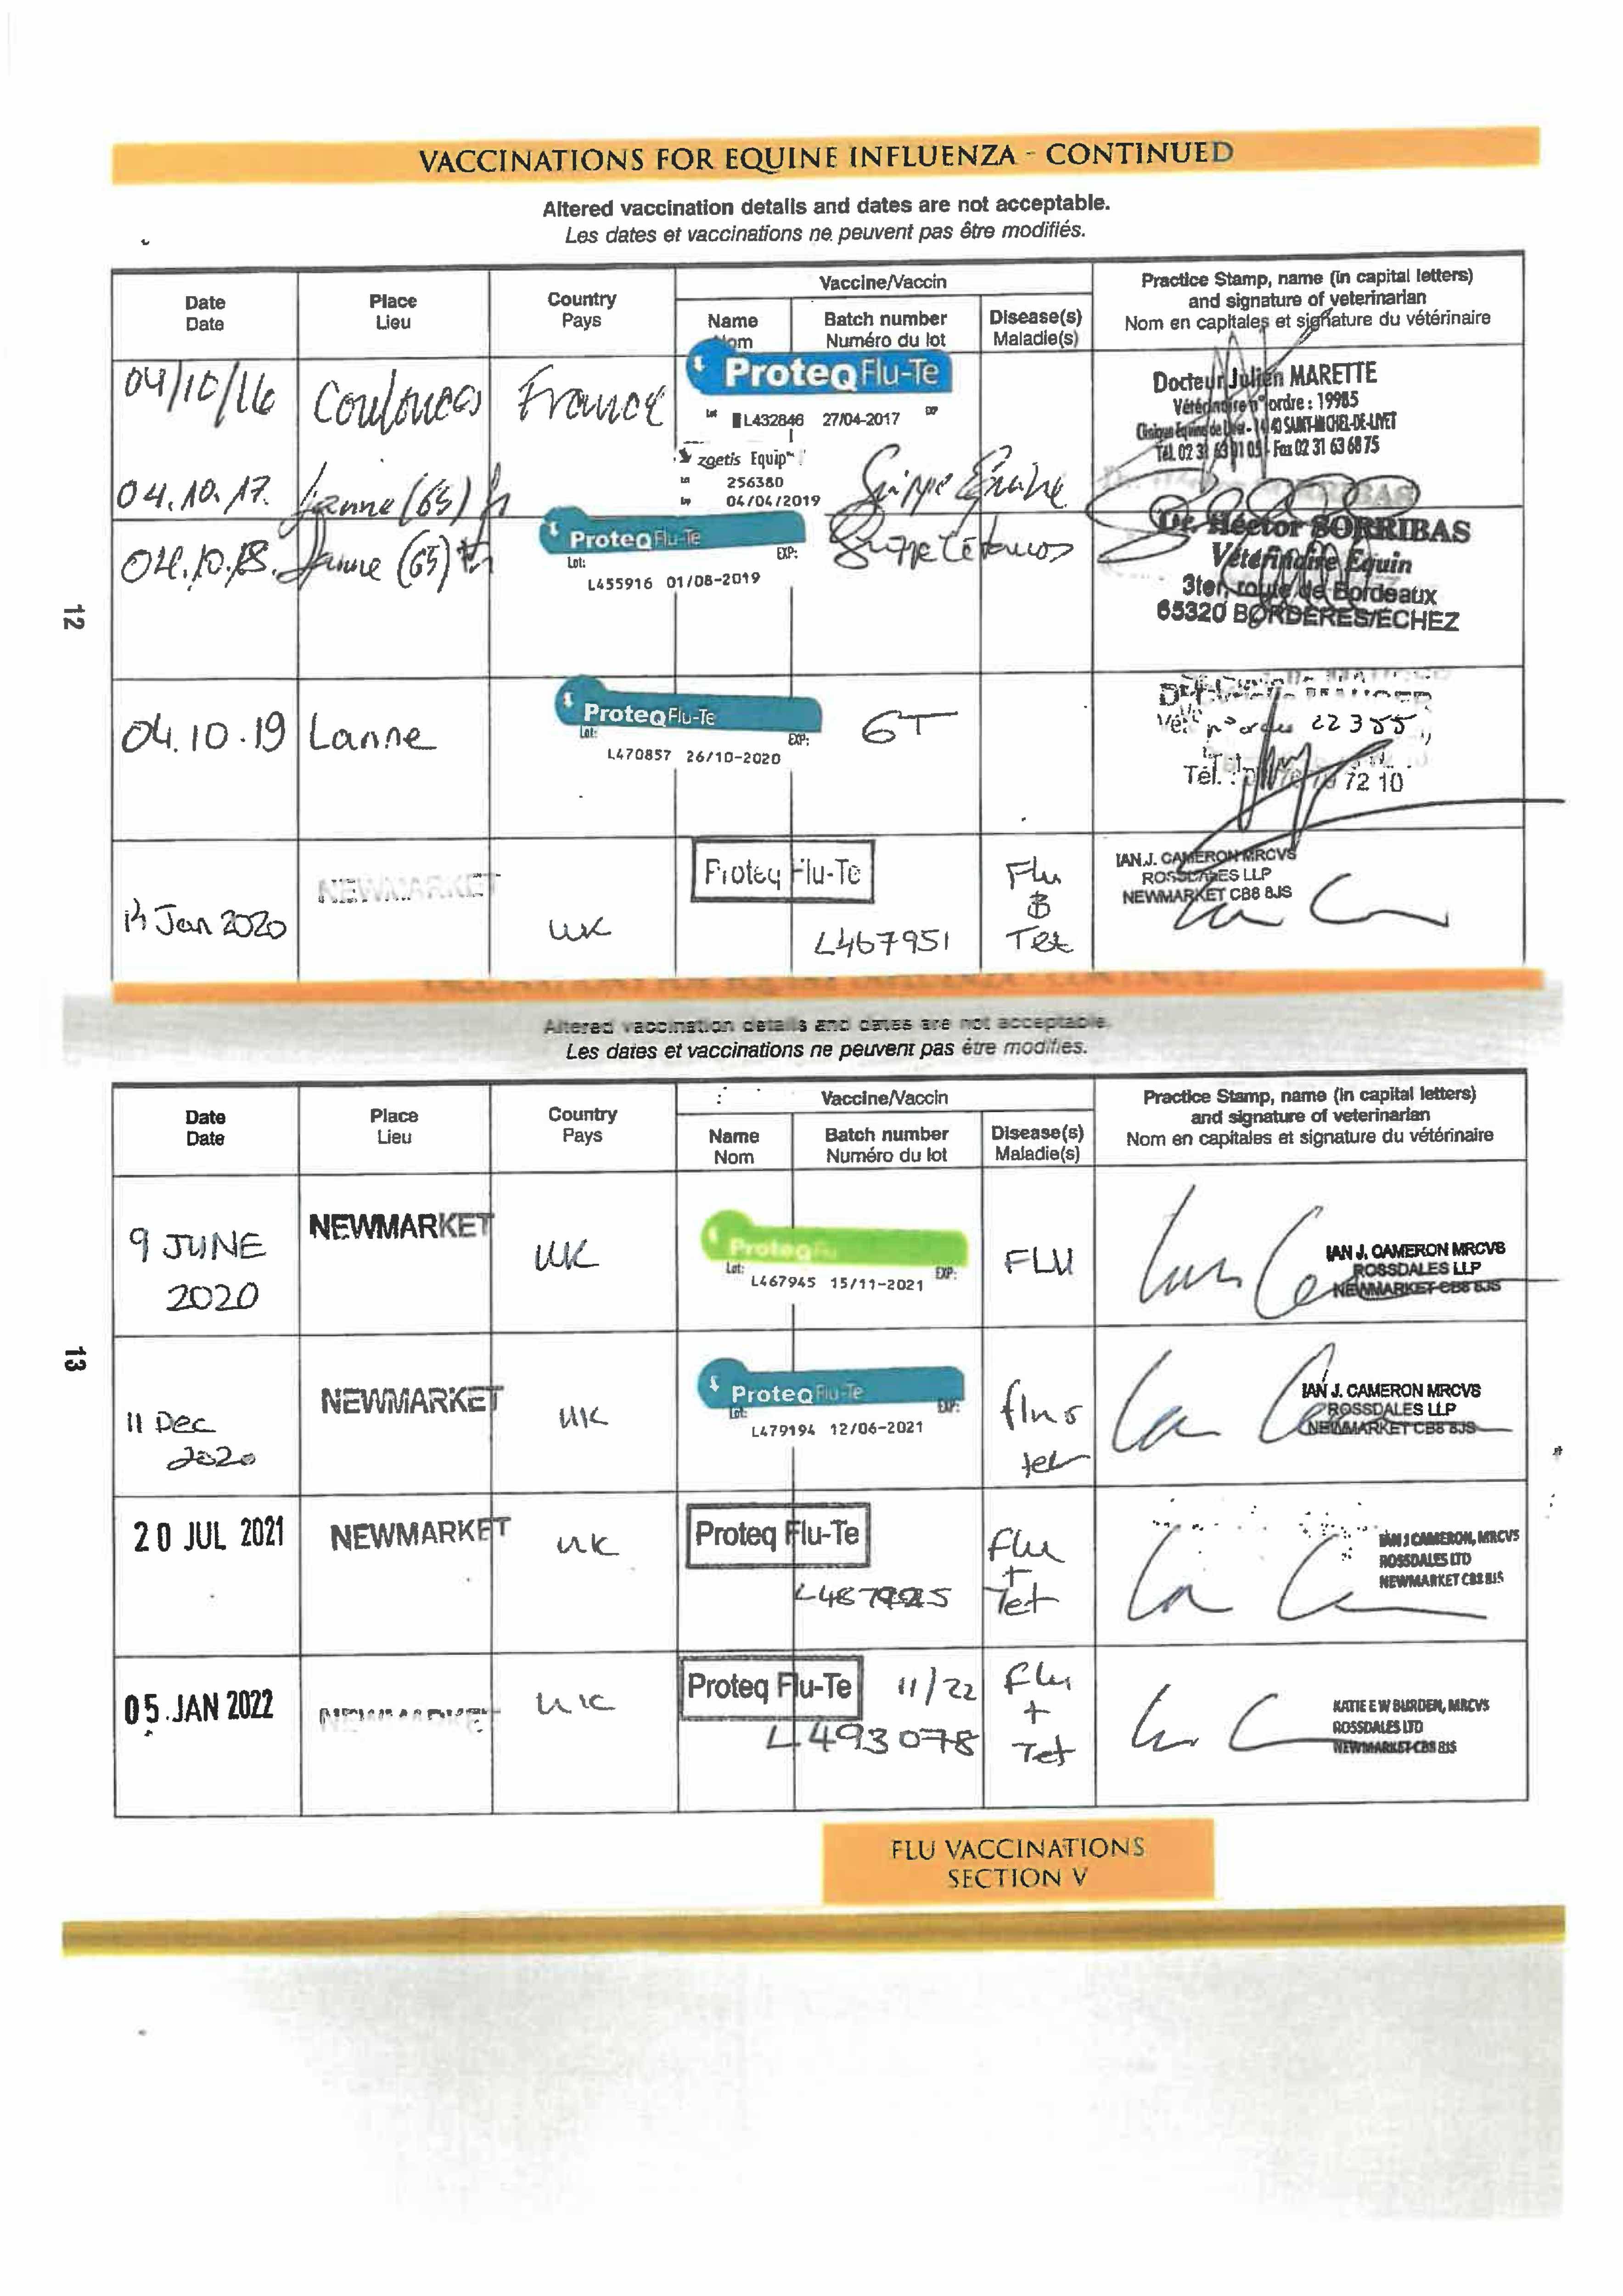 VACCINATIONS FOR EQUINE INFLUENZA - CONTINUED
Altered vaccination details and dates are not acceptable.
Les dates et vaccinations ne peuvent pas être modifiés.
Date
Date
Place
Lieu
Country
Pays
Vaccine/Vaccin
Name
Nom
Batch number
Numéro du lot
Disease(s)
Maladie(s)
Practice Stamp, name (in capital letters)
and signature of veterinarian
Nom en capitales et signature du vétérinaire
04/10/16
France
ProteqFlu-Te
L432846 27/04-2017
Docteur Julien MARETTE
ordre : 19985
SAINT-MICHEL-DE-LIVET
Fax 02 31 63 68 75
04.10.17.
(65)
zoetis Equip
256380
04/04/2019
Grippe Équine
04.10.18.
(65)
ProteqFlu-Te
Lot: EXP:
L455916 01/08-2019
Grippe Tétanos
Dr. Hector SORRIBAS
Vétérinaire Equin
3ter, route de Bordeaux
65320 BORDERES/ECHEZ
12
04.10.19
Lanne
ProteqFlu-Te
Lot: EXP:
L470857 26/10-2020
GT
22355
Tél. :
72 10
Jan 2020
NEWMARKET
UK
Proteq Flu-Te
L467951
Flu
&
Tet
IAN J. CAMERON MRCVS
ROSSDALES LLP
NEWMARKET CB8 8JS
Altered vaccination details and dates are not acceptable.
Les dates et vaccinations ne peuvent pas être modifiés.
Date
Date
Place
Lieu
Country
Pays
Vaccine/Vaccin
Name
Nom
Batch number
Numéro du lot
Disease(s)
Maladie(s)
Practice Stamp, name (in capital letters)
and signature of veterinarian
Nom en capitales et signature du vétérinaire
9 JUNE
2020
NEWMARKET
UK
ProteqFlu
Lot: EXP:
L467945 15/11-2021
FLU
IAN J. CAMERON MRCVS
ROSSDALES LLP
NEWMARKET CB8 8JS
13
11 Dec
2020
NEWMARKET
UK
ProteqFlu-Te
Lot: EXP:
L479194 12/06-2021
flu
tet
IAN J. CAMERON MRCVS
ROSSDALES LLP
NEWMARKET CB8 8JS
20 JUL 2021
NEWMARKET
UK
Proteq Flu-Te
Flu
+
Tet
IAN J CAMERON, MRCVS
ROSSDALES LTD
NEWMARKET CB8 8JS
05 JAN 2022
NEWMARKET
UK
Proteq Flu-Te
11/22
L493078
Flu
+
Tet
KATIE E W BURDEN, MRCVS
ROSSDALES LTD
NEWMARKET CB8 8JS
FLU VACCINATIONS
SECTION V